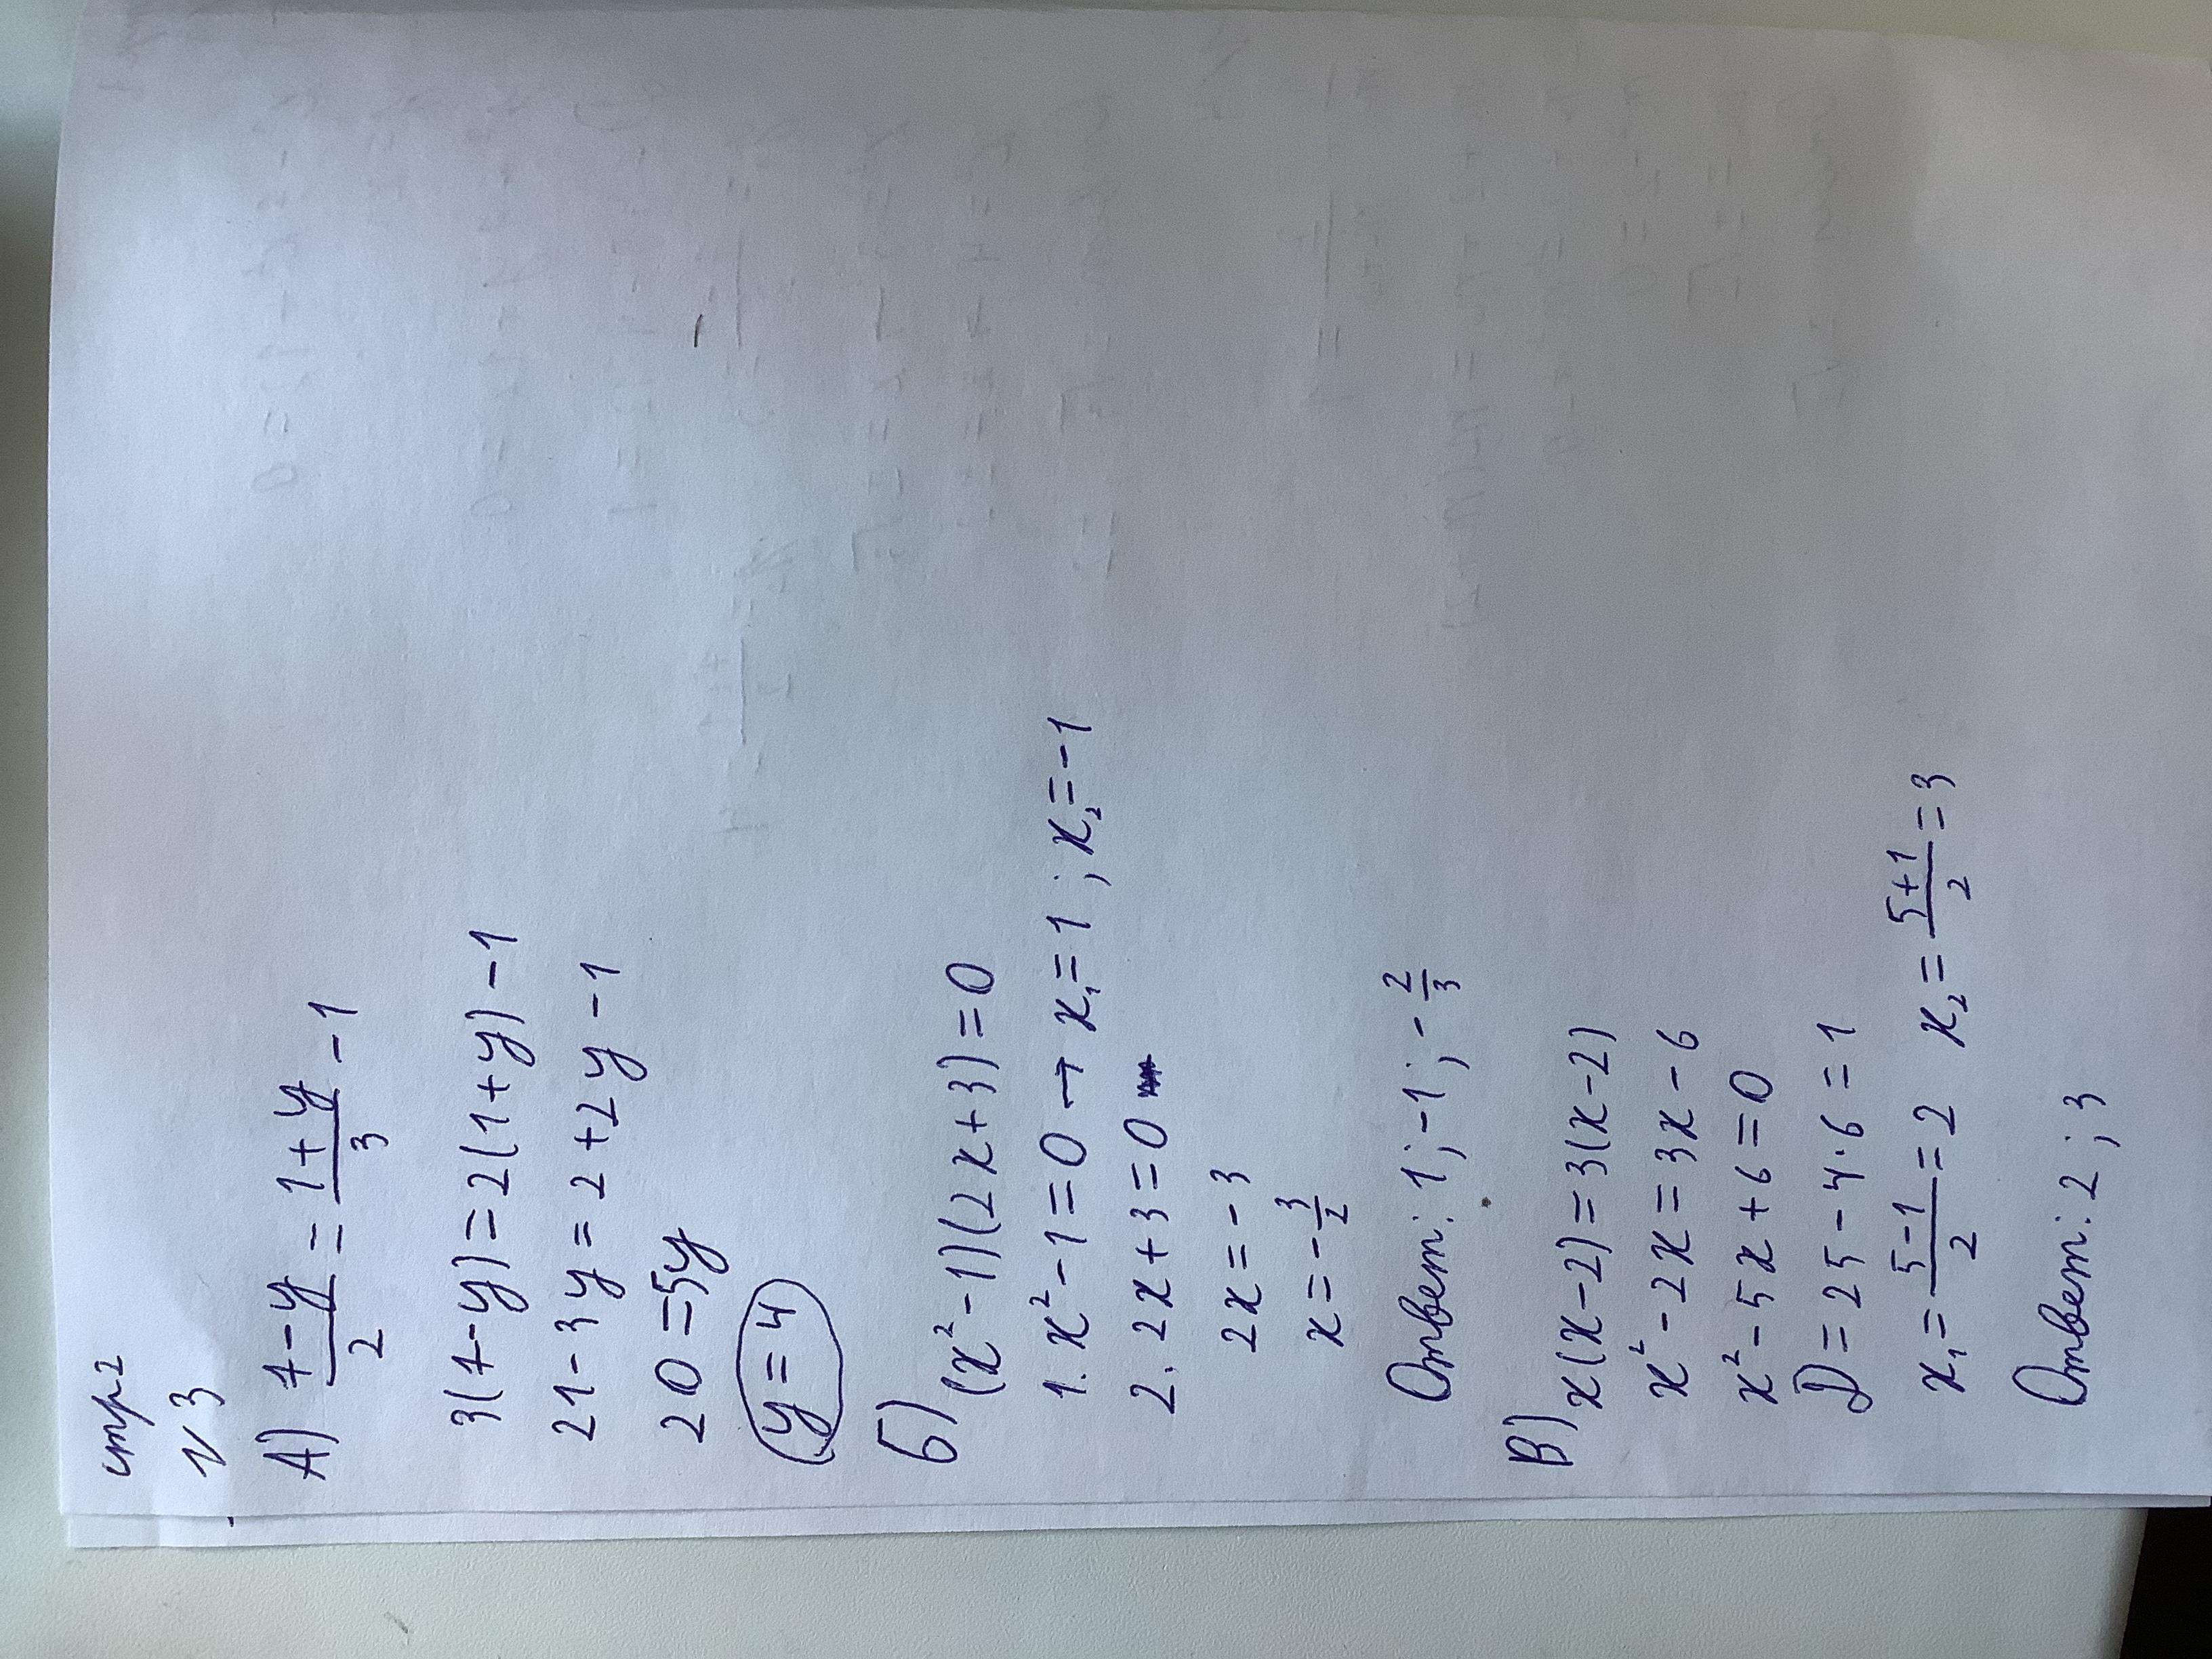 стр 2
N 3
А) (7-y)/2 = (1+y)/3 - 1
3(7-y)=2(1+y)-1
21-3y=2+2y-1
20=5y
y=4
Б) (x²-1)(2x+3)=0
1. x²-1=0 → x₁=1; x₂=-1
2. 2x+3=0
2x=-3
x=-3/2
Ответ: 1; -1; -2/3
В) x(x-2)=3(x-2)
x²-2x=3x-6
x²-5x+6=0
D=25-4·6=1
x₁=(5-1)/2=2 x₂=(5+1)/2=3
Ответ: 2; 3